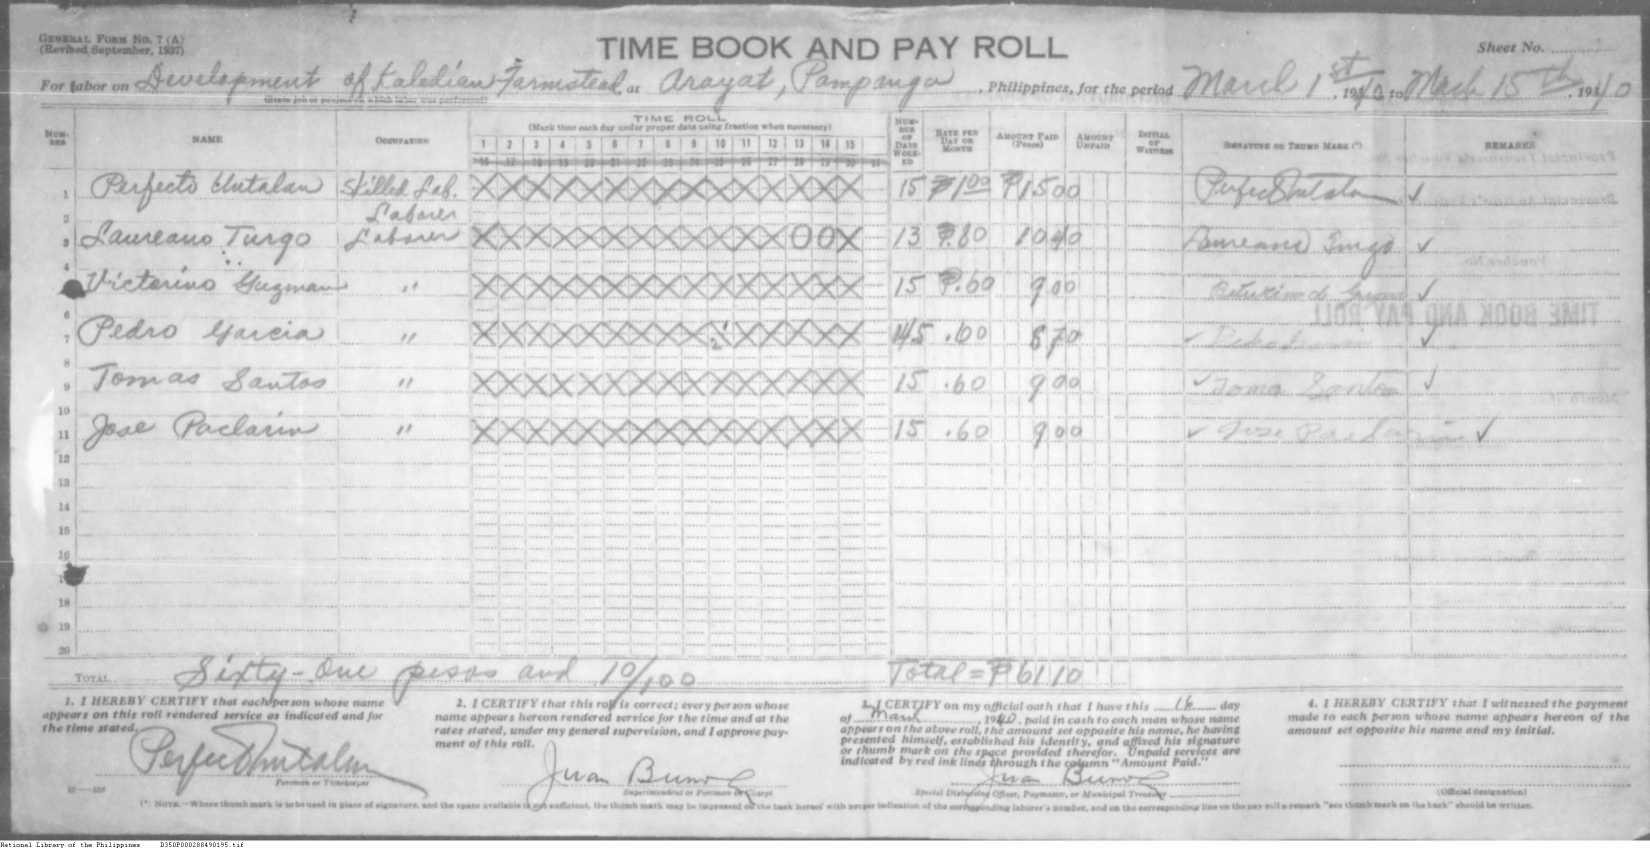 GENERAL FORM NO. 7 (A)
(Revised September, 1937)
TIME BOOK AND PAY ROLL
Sheet No.
For labor on Development of Kaledian Farmstead at Arayat, Pampanga, Philippines, for the period March 1st, 1940 to March 15th, 1940
NUMBER NAME OCCUPATION TIME ROLL NUMBER OF DAYS WORKED RATE PER DAY OR MONTH AMOUNT PAID (Pesos) AMOUNT UNPAID INITIAL OF WITNESS SIGNATURE OR THUMB MARK (*) REMARKS
(Mark time each day under proper date using fraction when necessary)
1 2 3 4 5 6 7 8 9 10 11 12 13 14 15
1 Perfecto Skilled Lab. X X X X X X X X X X X X X X X 15 ₱1.00 ₱15 00 ✓
2 Laborer
3 Laureano Turgo Laborer X X X X X X X X X X X X O O X 13 ₱.80 10 40 Laureano Turgo ✓
4
Victorino Guzman " X X X X X X X X X X X X X X X 15 ₱.60 9 00 ✓
6
7 Pedro Garcia " X X X X X X X X X X X X X X 14.5 .60 8 70 ✓ ✓
8
9 Tomas Santos " X X X X X X X X X X X X X X X 15 .60 9 00 ✓ Toma Santos ✓
10
11 Jose Paclarin " X X X X X X X X X X X X X X X 15 .60 9 00 ✓ Jose Paclarin ✓
12
13
14
15
16
18
19
20
TOTAL Sixty-One pesos and 10/100 Total = ₱61 10
1. I HEREBY CERTIFY that each person whose name
appears on this roll rendered service as indicated and for
the time stated.
Foreman or Timekeeper
2. I CERTIFY that this roll is correct; every person whose
name appears hereon rendered service for the time and at the
rates stated, under my general supervision, and I approve pay-
ment of this roll.
Juan
Superintendent or Foreman in Charge
3. I CERTIFY on my official oath that I have this 16 day
of March, 1940, paid in cash to each man whose name
appears on the above roll, the amount set opposite his name, he having
presented himself, established his identity, and affixed his signature
or thumb mark on the space provided therefor. Unpaid services are
indicated by red ink lines through the column "Amount Paid."
Juan
Special Disbursing Officer, Paymaster, or Municipal Treasurer
4. I HEREBY CERTIFY that I witnessed the payment
made to each person whose name appears hereon of the
amount set opposite his name and my initial.
(Official designation)
(*) NOTE.—Where thumb mark is to be used in place of signature, and the space available is not sufficient, the thumb mark may be impressed on the back hereof with proper indication of the corresponding laborer's number, and on the corresponding line on the pay roll a remark "see thumb mark on the back" should be written.
National Library of the Philippines D350P000288490195.tif